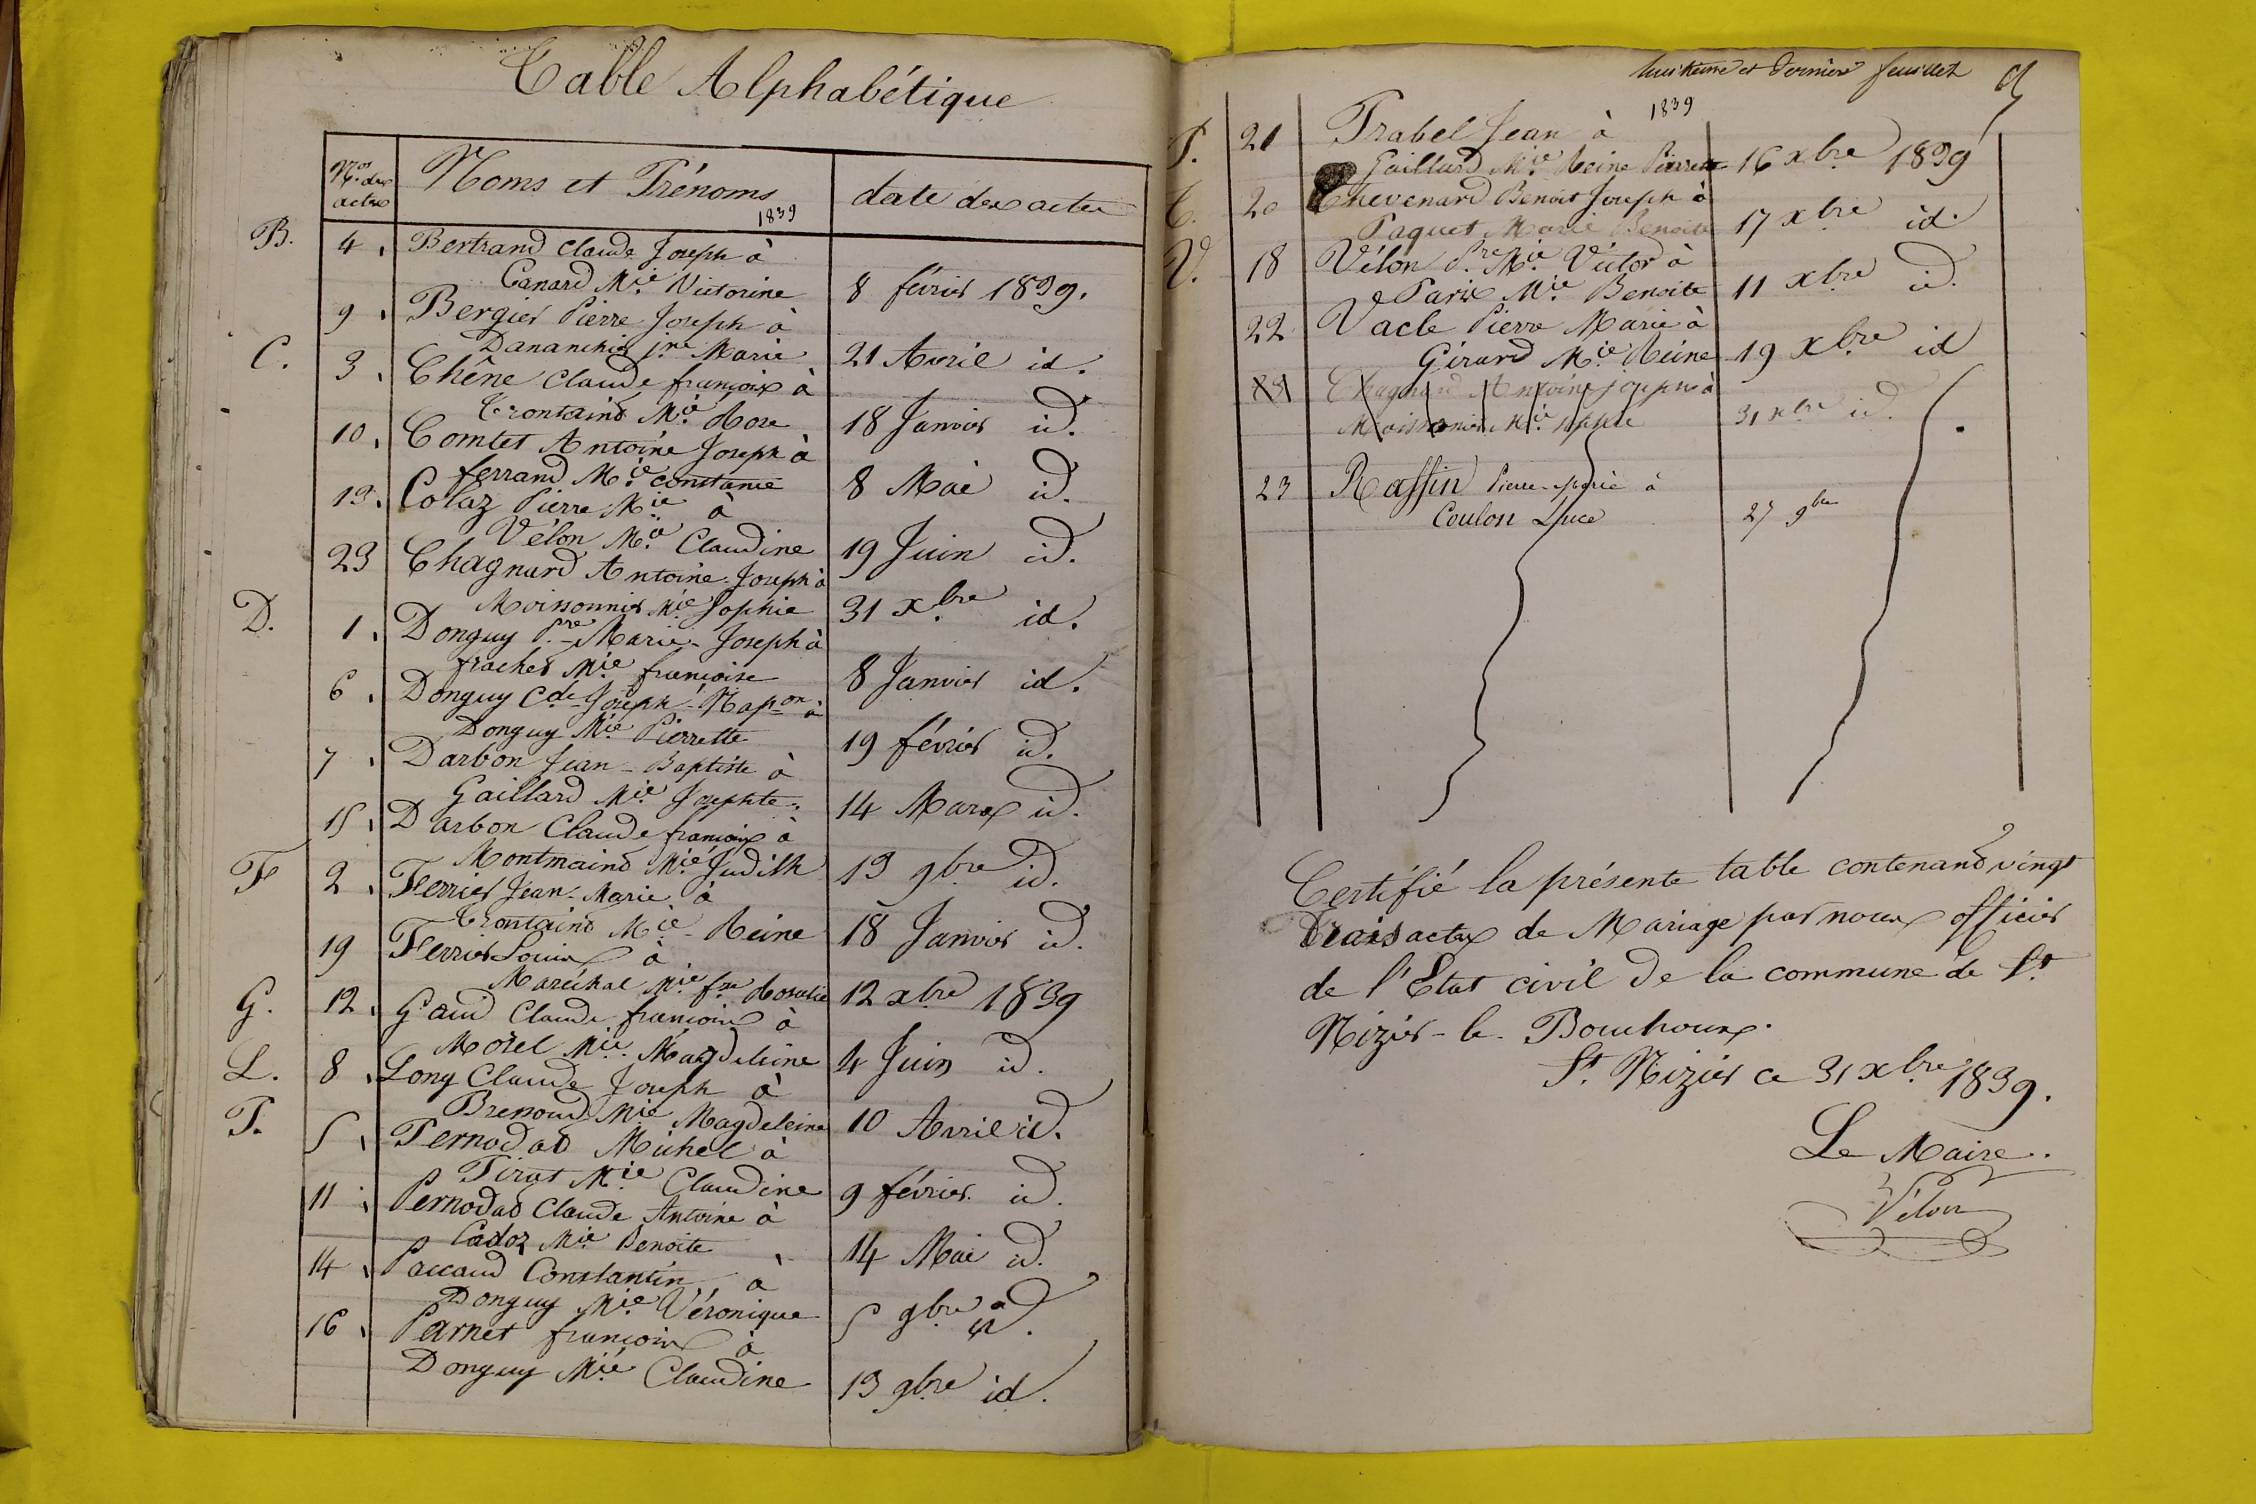 Table Alphabétique
Nos des actes
Noms et Prénoms
1839
date des actes
B.
4. Bertrand Claude Joseph à
Canard Mie Victorine 8 février 1839.
9. Bergier Pierre Joseph à
Dananchin jne Marie 21 Avril id.
C.
3. Chêne Claude françois à
Trontaind Mie Rose 18 Janvier id.
10. Comtet Antoine Joseph à
ferrand Mie constance 8 Mai id.
13. Colaz Pierre Mie à
Vélon Mie Claudine 19 Juin id.
23 Chagnard Antoine Joseph à
Moissonnier Mie Sophie 31 xbre id.
D.
1. Donguy Pre Marie Joseph à
fracher Mie françoise 8 Janvier id.
6. Donguy Cde Joseph Napon à
Donguy Mie Pierrette 19 février id.
7. Darbon Jean-Baptiste à
Gaillard Mie Josephte. 14 Mars id.
15. Darbon Claude françois à
Montmaind Mie Judith 13 9bre id.
F
2. Ferrier Jean-Marie à
Trontaind Mie Reine 18 Janvier id.
19 Ferrier Louis à
Maréchal Mie fse Rosalie 12 xbre 1839
G.
12. Gaud Claude françois à
Morel Mie Magdeleine 4 Juin id.
L.
8. Long Claude Joseph à
Bressoud Mie Magdeleine 10 Avril id.
P.
5. Pernodad Michel à
Pirat Mie Claudine 9 février id.
11. Pernodad Claude Antoine à
Cadoz Mie Benoite 14 Mai id.
14. Paccaud Constantin à
Donguy Mie Véronique 5 9bre id.
16. Parnet françois à
Donguy Mie Claudine 13 9bre id.
huitième et dernier feuillet
1839
P. 21 Prabel Jean à
Gaillard Mie Reine Pierrette 16 xbre 1839
C. 20 Chevenard Benoit Joseph à
Paquet Marie Benoite 17 xbre id.
V. 18 Vélon Pre Mie Victor à
Paris Mie Benoite 11 xbre id.
22 Vacle Pierre Marie à
Girard Mie Reine 19 xbre id
23 Chagnard Antoine Joseph à
Moissonnier Mie Sophie 31 xbre id.
23 Raffin Pierre-Marie à
Coulon Luce 27 9bre
Certifié la présente table contenand vingt
trois actes de Mariage par nous officier
de l'Etat civil de la commune de St
Nizier-le-Bouchoux.
St Nizier ce 31 xbre 1839.
Le Maire.
Vélon